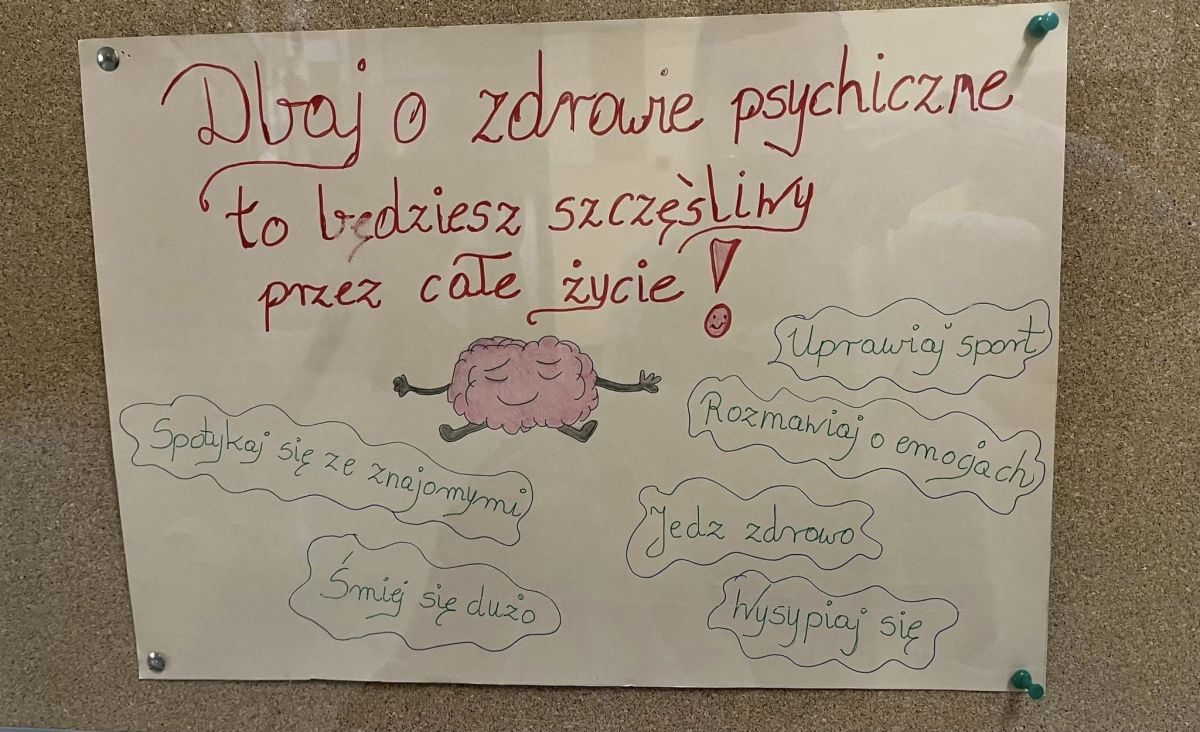 Dbaj o zdrowie psychiczne
to będziesz szczęśliwy
przez całe życie!
Uprawiaj sport
Rozmawiaj o emocjach
Spotykaj się ze znajomymi
Jedz zdrowo
Śmiej się dużo
Wysypiaj się